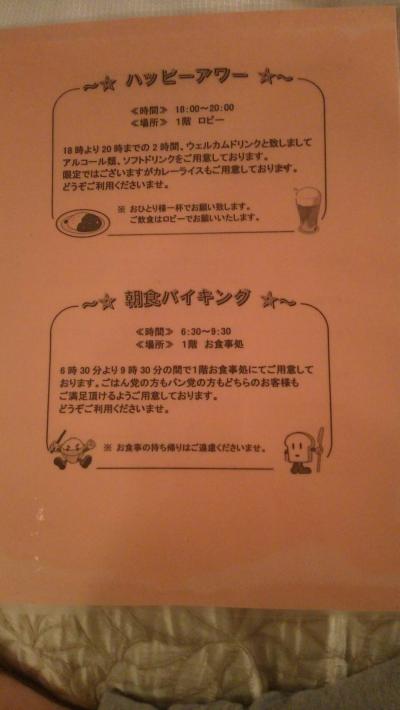 ～☆ ハッピーアワー ☆～
≪時間≫ 18:00～20:00
≪場所≫ 1階 ロビー
18時より20時までの2時間、ウェルカムドリンクと致しまして
アルコール類、ソフトドリンクをご用意しております。
限定ではございますがカレーライスもご用意しております。
どうぞご利用くださいませ。
※ おひとり様一杯でお願い致します。
ご飲食はロビーでお願いいたします。
～☆ 朝食バイキング ☆～
≪時間≫ 6:30～9:30
≪場所≫ 1階 お食事処
6時30分より9時30分の間で1階お食事処にてご用意して
おります。ごはん党の方もパン党の方もどちらのお客様も
ご満足頂けるようご用意しております。
どうぞご利用くださいませ。
※ お食事の持ち帰りはご遠慮くださいませ。